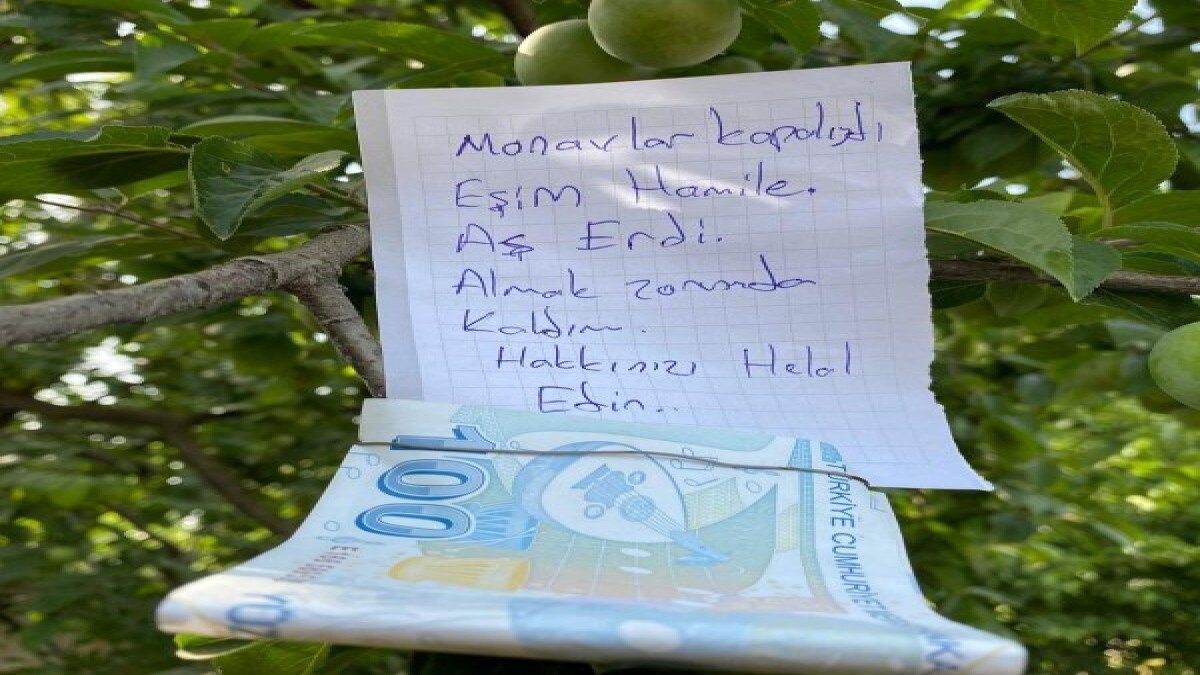 Manavlar kapalıydı
Eşim Hamile.
Aş Erdi.
Almak zorunda
Kaldım.
Hakkınızı Helal
Edin..
100
TÜRKİYE CUMHURİYET